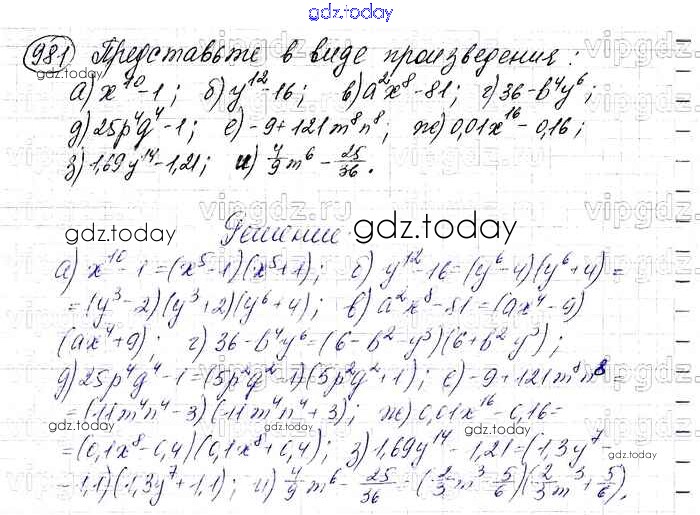 gdz.today
981 Представьте в виде произведения:
а) x^10-1; б) y^12-16; в) a^2x^8-81; г) 36-b^4y^6;
д) 25p^4q^4-1; е) -9+121m^8n^8; ж) 0,01x^16-0,16;
з) 1,69y^14-1,21; и) 4/9 m^6 - 25/36.
Решение
gdz.today
а) x^10-1=(x^5-1)(x^5+1); б) y^12-16=(y^6-4)(y^6+4)=
=(y^3-2)(y^3+2)(y^6+4); в) a^2x^8-81=(ax^4-9)
(ax^4+9); г) 36-b^4y^6=(6-b^2-y^3)(6+b^2y^3);
д) 25p^4q^4-1=(5p^2q^2-1)(5p^2q^2+1); е) -9+121m^8n^8=
=(11m^4n^4-3)(11m^4n^4+3); ж) 0,01x^16-0,16=
=(0,1x^8-0,4)(0,1x^8+0,4); з) 1,69y^14-1,21=(1,3y^7-
-1,1)(1,3y^7+1,1); и) 4/9 m^6 - 25/36 = (2/3 m^3 - 5/6)(2/3 m^3 + 5/6).
gdz.today